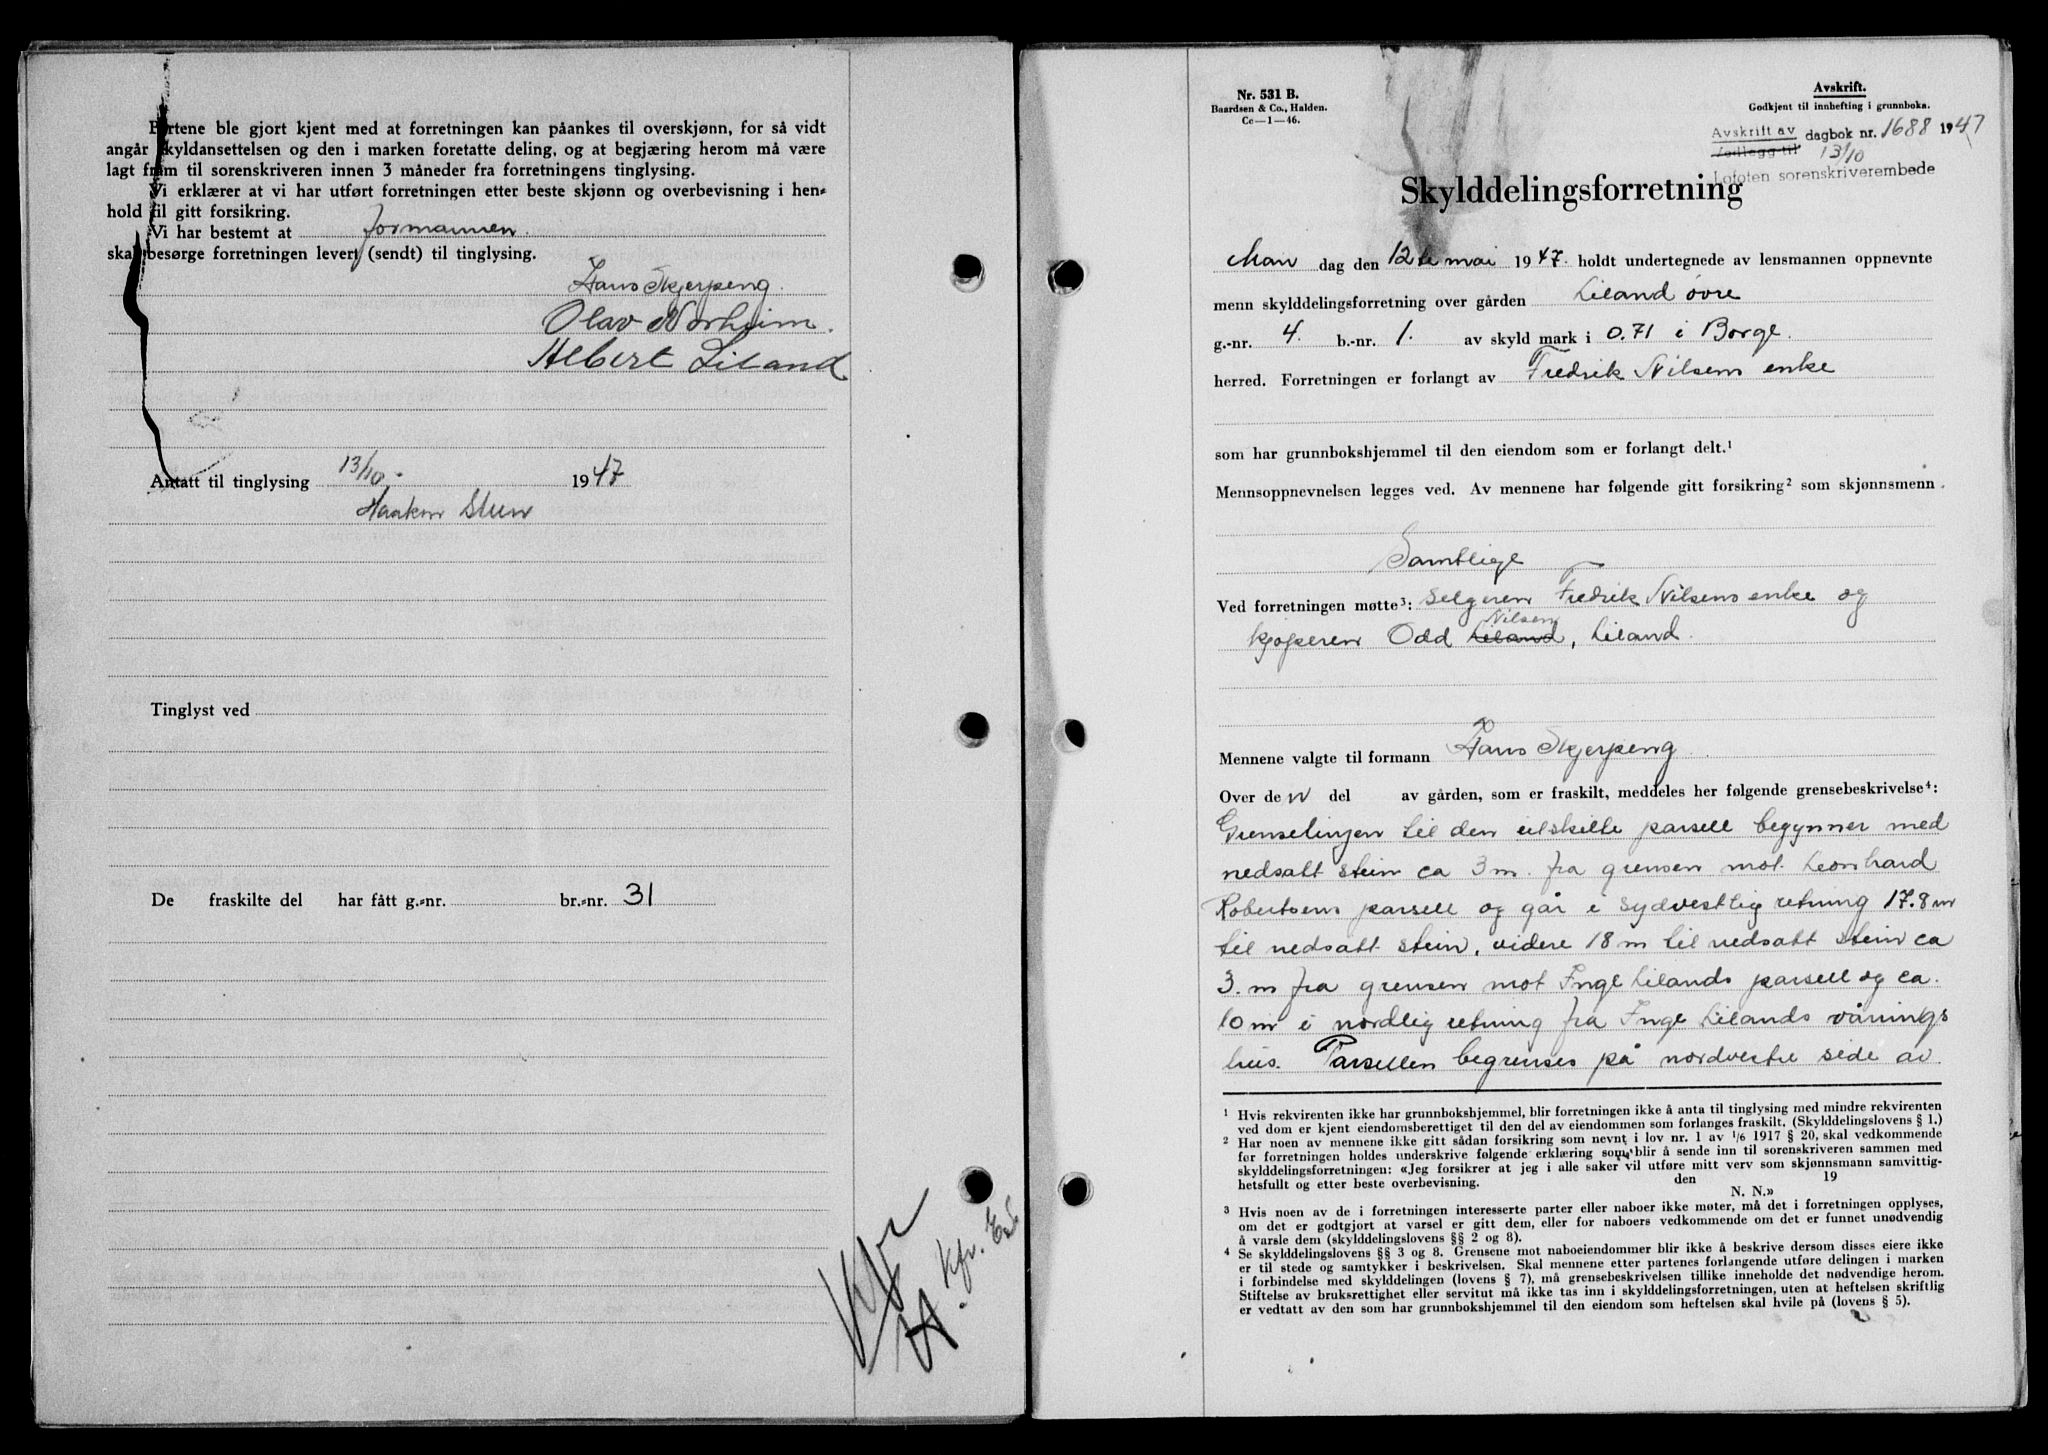 Partene ble gjort kjent med at forretningen kan påankes til overskjønn, for så vidt
angår skyldansettelsen og den i marken foretatte deling, og at begjæring herom må være
lagt fram til sorenskriveren innen 3 måneder fra forretningens tinglysing.
Vi erklærer at vi har utført forretningen etter beste skjønn og overbevisning i hen-
hold til gitt forsikring.
Vi har bestemt at formannen
skal besørge forretningen levert (sendt) til tinglysing.
Hans Skjerpeng.
Olav Norheim.
Albert Liland
Antatt til tinglysing 13/10. 1947
Haakon Steen
Tinglyst ved
De fraskilte del har fått g.-nr. br.-nr. 31
Kfr.
Nr. 531 B.
Baardsen & Co., Halden.
Cc—1—46.
Avskrift.
Godkjent til innhefting i grunnboka.
Avskrift av dagbok nr. 1688 1947
Vedlegg til 13/10
Lofoten sorenskriverembede
Skylddelingsforretning
Man dag den 12te mai 1947. holdt undertegnede av lensmannen oppnevnte
menn skylddelingsforretning over gården Liland øvre
g.-nr. 4. b.-nr. 1. av skyld mark i 0.71 i Borge.
herred. Forretningen er forlangt av Fredrik Nilsens enke
som har grunnbokshjemmel til den eiendom som er forlangt delt.¹
Mennsoppnevnelsen legges ved. Av mennene har følgende gitt forsikring² som skjønnsmenn
Samtlige
Ved forretningen møtte³: Selgeren Fredrik Nilsens enke og
Nilsen
kjøperen Odd Liland, Liland.
Mennene valgte til formann Hans Skjerpeng
Over den del av gården, som er fraskilt, meddeles her følgende grensebeskrivelse⁴:
Grenselinjen til den utskilte parsell begynner med
nedsatt stein ca 3 m. fra grensen mot Leonhard
Robertsens parsell og går i sydvestlig retning 17.8 m
til nedsatt stein, videre 18 m til nedsatt stein ca
3. m fra grensen mot Inge Lilands parsell og ca.
10 m i nordlig retning fra Inge Lilands vånings
hus. Parsellen begrenses på nordvestre side av
¹ Hvis rekvirenten ikke har grunnbokshjemmel, blir forretningen ikke å anta til tinglysing med mindre rekvirenten
ved dom er kjent eiendomsberettiget til den del av eiendommen som forlanges fraskilt. (Skylddelingslovens § 1.)
² Har noen av mennene ikke gitt sådan forsikring som nevnt i lov nr. 1 av 1/6 1917 § 20, skal vedkommende
før forretningen holdes underskrive følgende erklæring som blir å sende inn til sorenskriveren sammen med
skylddelingsforretningen: «Jeg forsikrer at jeg i alle saker vil utføre mitt verv som skjønnsmann samvittig-
hetsfullt og etter beste overbevisning. den 19
N. N.»
³ Hvis noen av de i forretningen interesserte parter eller naboer ikke møter, må det i forretningen opplyses,
om det er godtgjort at varsel er gitt dem, eller for naboers vedkommende om det er funnet unødvendig
å varsle dem (skylddelingslovens §§ 2 og 8).
⁴ Se skylddelingslovens §§ 3 og 8. Grensene mot naboeiendommer blir ikke å beskrive dersom disses eiere ikke
er til stede og samtykker i beskrivelsen. Skal mennene etter partenes forlangende utføre delingen i marken
i forbindelse med skylddelingen (lovens § 7), må grensebeskrivelsen tillike inneholde det nødvendige herom.
Stiftelse av bruksrettighet eller servitut må ikke tas inn i skylddelingsforretningen, uten at heftelsen skriftlig
er vedtatt av den som har grunnbokshjemmel til den eiendom som heftelsen skal hvile på (lovens § 5).